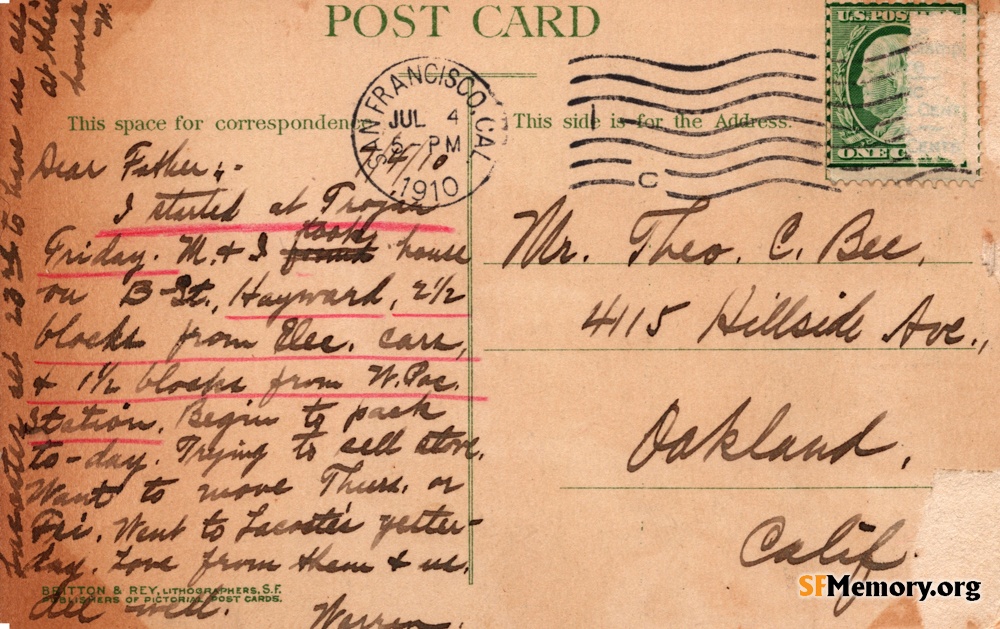 POST CARD
This space for correspondenc
This side is for the Address.
SAN FRANCISCO, CAL.
JUL 4
5- PM
1910
C
U.S. POS
ONE C
4/10
Dear Father:-
I started at Trojan
Friday. M. & I took house
on B St., Hayward, 2½
blocks from Elec. cars,
& 1½ blocks from W. Pac.
Station. Begin to pack
to-day. Trying to sell stove.
Want to move Thurs. or
Fri. Went to Lacoste's yester-
day. Love from them & us.
All well. Warren.
set 23rd to have us all
at their
house
W.
Mr. Theo. C. Bee,
4115 Hillside Ave.,
Oakland,
Calif.
BRITTON & REY, LITHOGRAPHERS, S.F.
PUBLISHERS OF PICTORIAL POST CARDS.
SFMemory.org